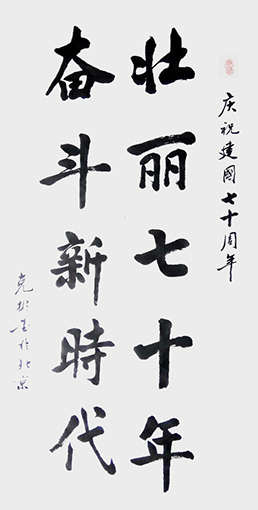 庆祝建國七十周年
壮丽七十年
奋斗新時代
克彬书於北京